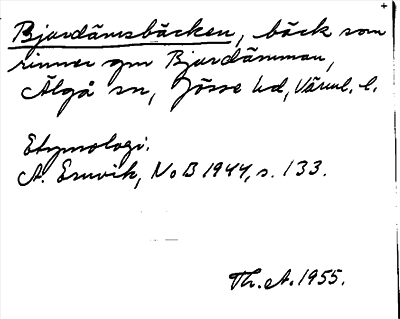 Bjurdämsbäcken, bäck som
rinner gm Bjurdämman,
Älgå sn, Jösse hd, Värml. l.
Etymologi.
A. Ernvik, NoB 1944, s. 133.
Th. A. 1955.